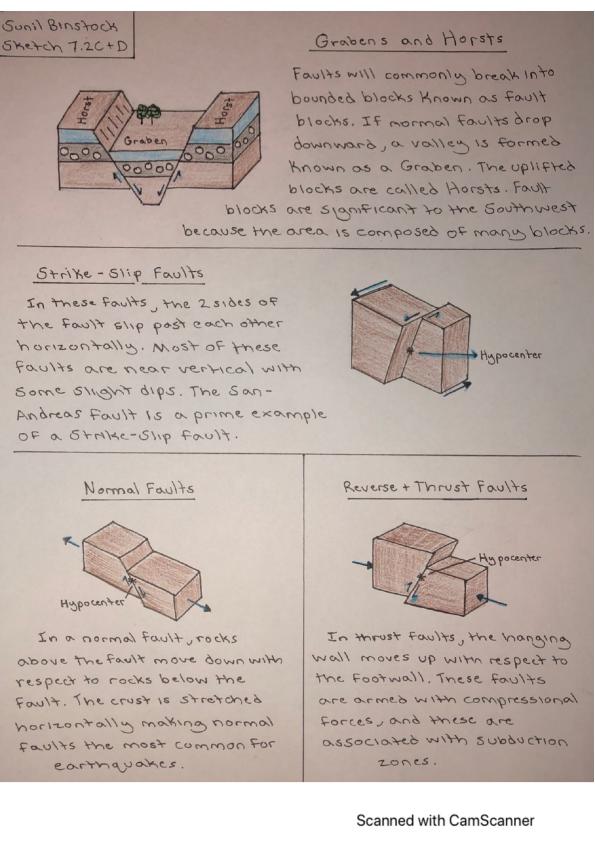 Sunil Binstock
Sketch 7.2C+D
Grabens and Horsts
Faults will commonly break into
bounded blocks known as fault
blocks. If normal faults drop
downward, a valley is formed
known as a Graben. The uplifted
blocks are called Horsts. Fault
blocks are significant to the Southwest
because the area is composed of many blocks.
Horst
Graben
Horst
Strike-Slip Faults
In these faults, the 2 sides of
the fault slip past each other
horizontally. Most of these
faults are near vertical with
some slight dips. The San-
Andreas Fault is a prime example
of a Strike-Slip fault.
Hypocenter
Normal Faults
Hypocenter
In a normal fault, rocks
above the fault move down with
respect to rocks below the
fault. The crust is stretched
horizontally making normal
faults the most common for
earthquakes.
Reverse + Thrust Faults
Hypocenter
In thrust faults, the hanging
wall moves up with respect to
the footwall. These faults
are armed with compressional
forces, and these are
associated with subduction
zones.
Scanned with CamScanner